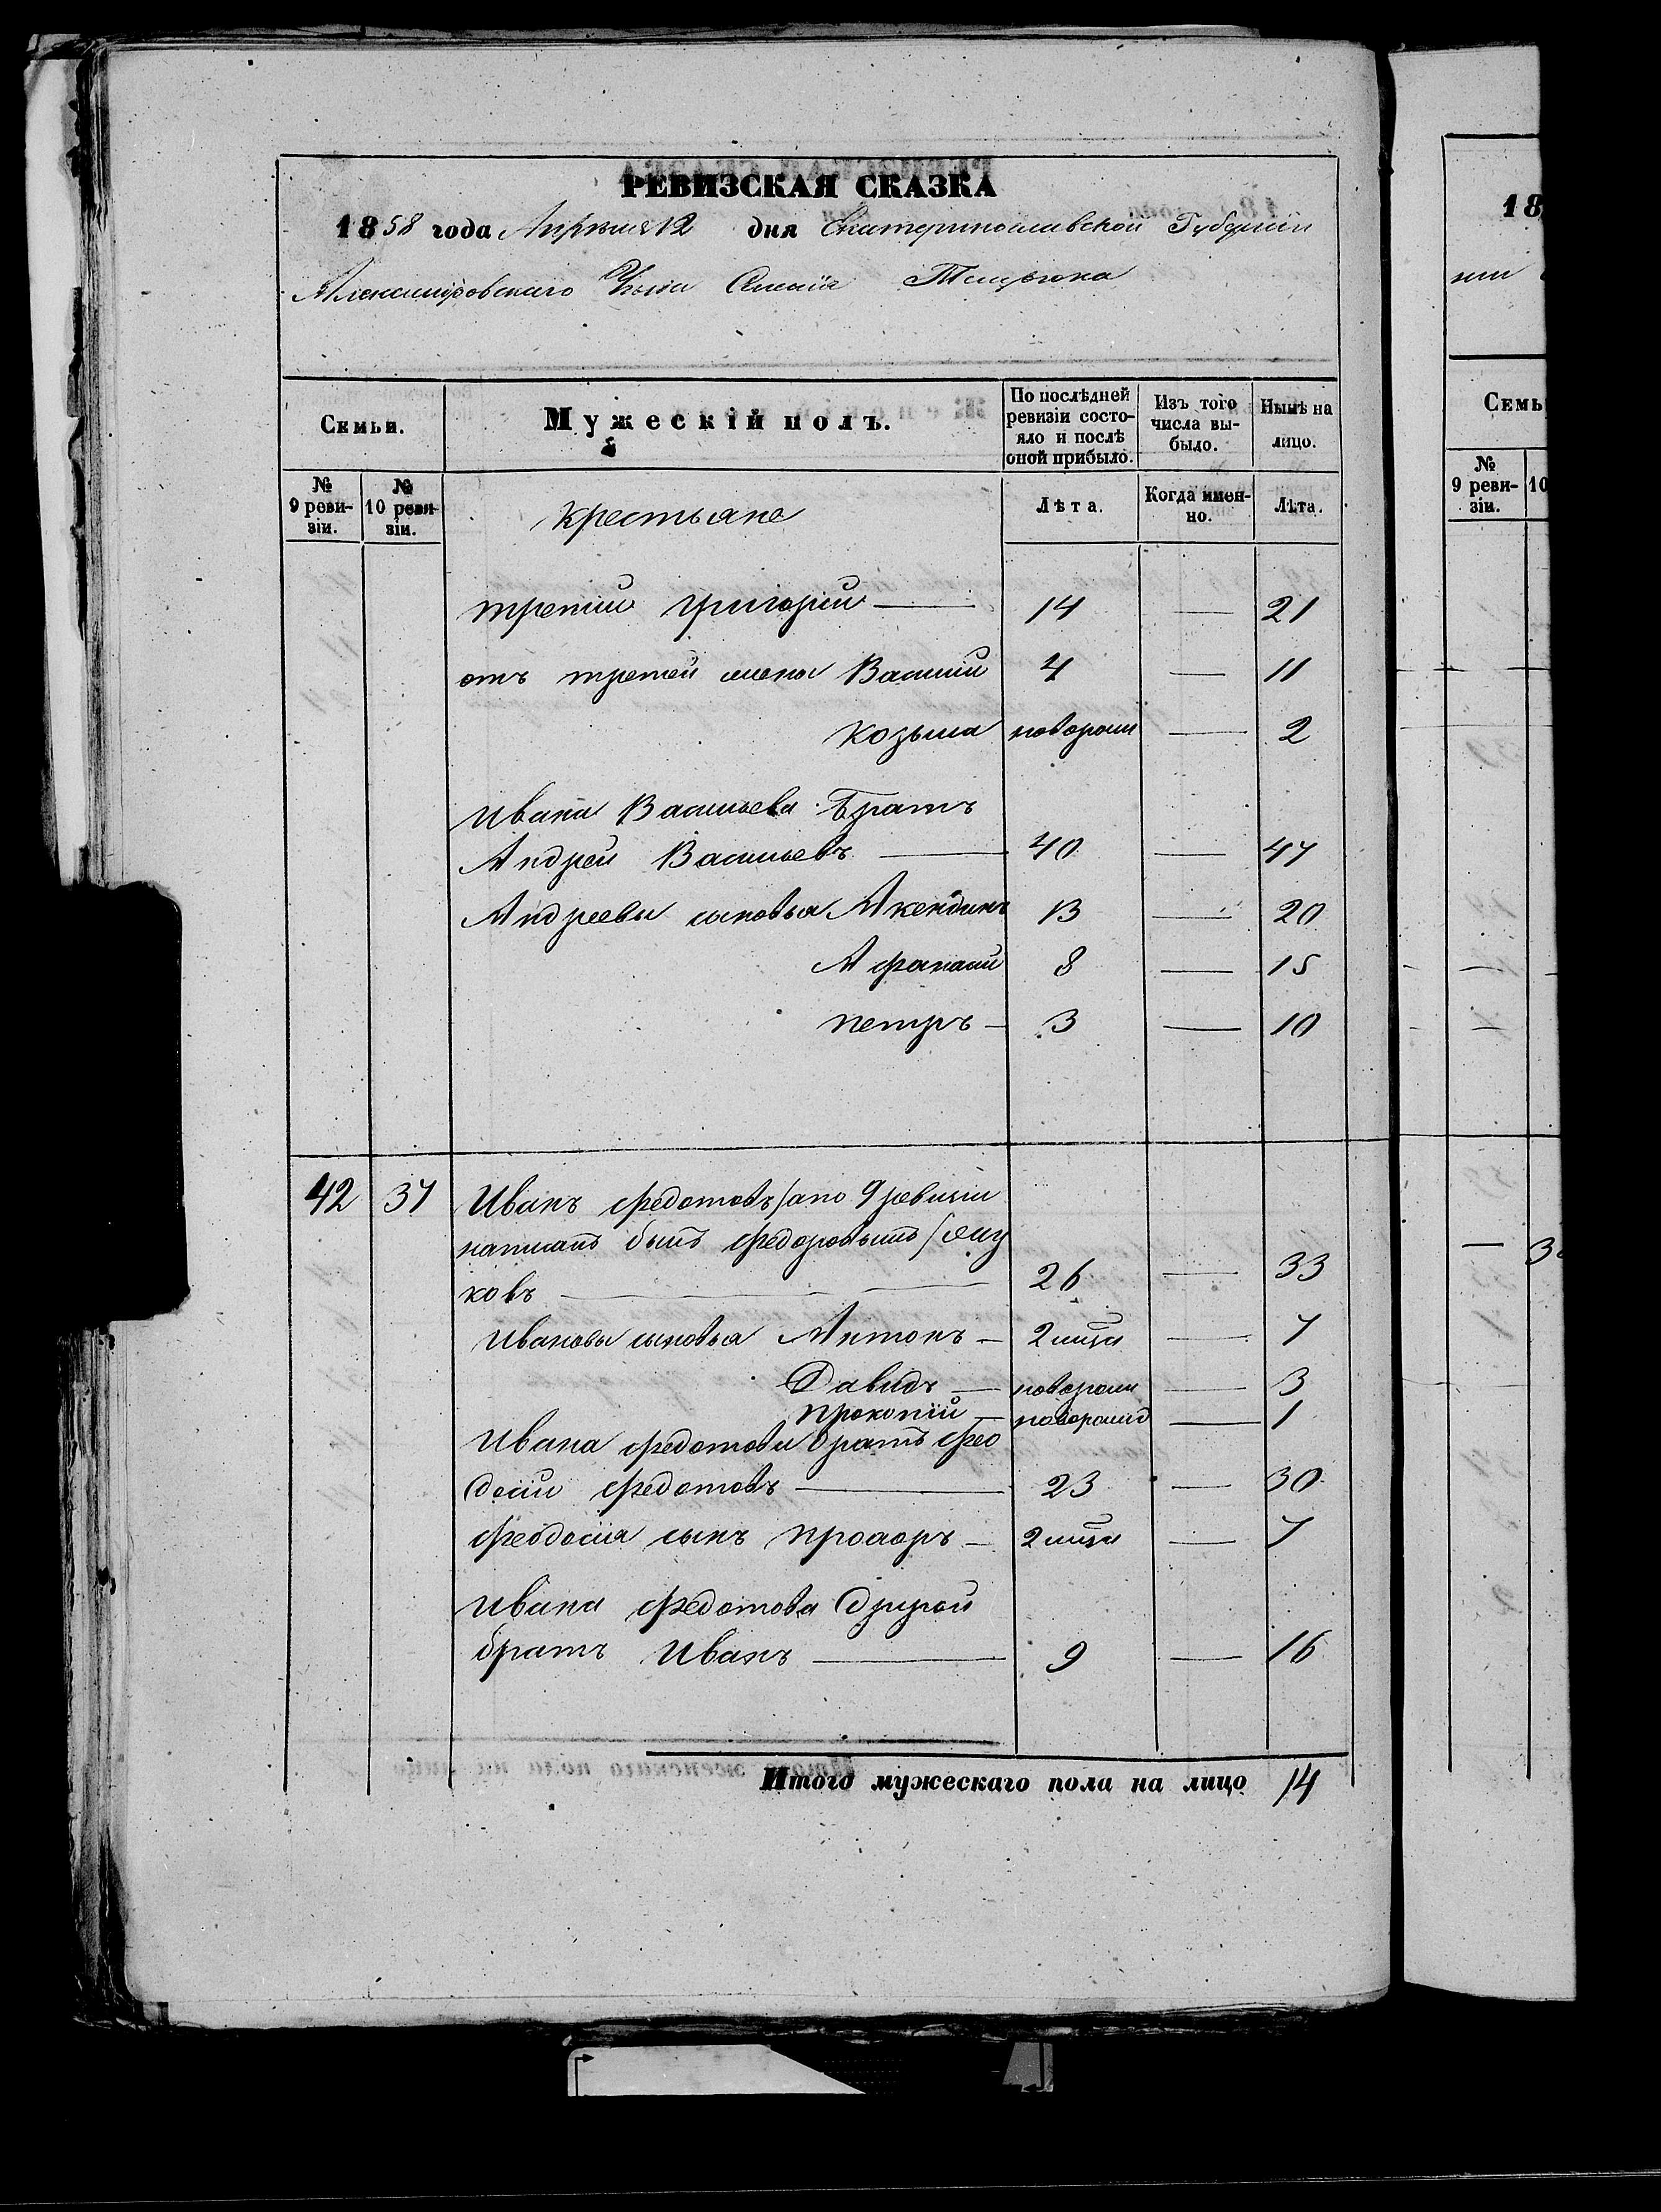 РЕВИЗСКАЯ СКАЗКА
1858 года Апреля 12 дня Екатеринославской Губернии
Александровскаго Уезда Села
Семьи. Мужескій полъ. По послѣдней ревизіи состояло и послѣ оной прибыло. Изъ того числа выбыло. Нынѣ на лицо.
№ 9 ревизіи. № 10 ревизіи. Крестьяне Лѣта. Когда именно. Лѣта.
третий Григорий — 14 — 21
отъ третей жены Василий 4 — 11
Козьма новорож — 2
Ивана Васильева Братъ
Андрей Васильевъ — 40 — 47
Андреевы сыновья 13 — 20
Афанасий 8 — 15
Петръ — 3 — 10
42 37 Иванъ Федотовъ /а по 9 ревизии
написанъ былъ Федоровымъ/
ковъ — 26 — 33
Ивановы сыновья Антонъ — 2 — 7
Давидъ — новорож — 3
Прокопій — новорожд — 1
Ивана Федотова братъ Фео
досий Федотовъ — 23 — 30
Феодосия сынъ Прохоръ — 2 — 7
Ивана Федотова другой
братъ Иванъ — 9 — 16
Итого мужескаго пола на лицо 14
18
Семь
№ 9 ревизіи. 10